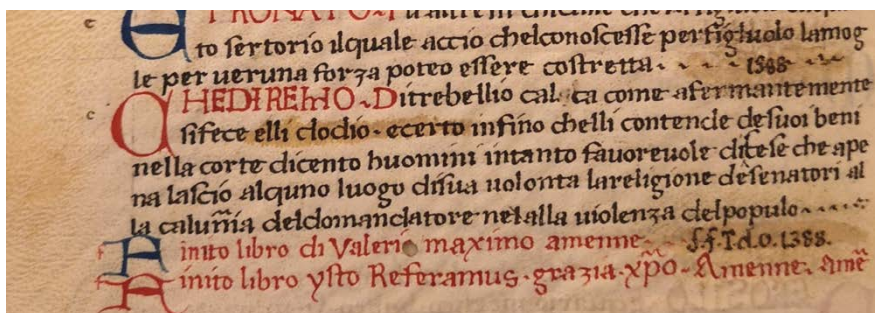 to sertorio ilquale accio chelconoscesse perfigluolo lamog
le per ueruna forza poteo essere costretta. 1388
CHEDIREMO. Ditrebellio cal ca come afermantemente
sifece elli clodio. ecerto infino chelli contende desuoi beni
nella corte dicento huomini intanto fauoreuole ditese che ape
na lascio alquno luogo disua uolonta lareligione desenatori al
la calum̃ia deldomandatore nelalla uiolenza delpopulo
Finito libro di Valerio maximo amenne. f.f.T.d.o.1388.
Finito libro ysto Referamus. grazia. xp̃o. Amenne. amẽ